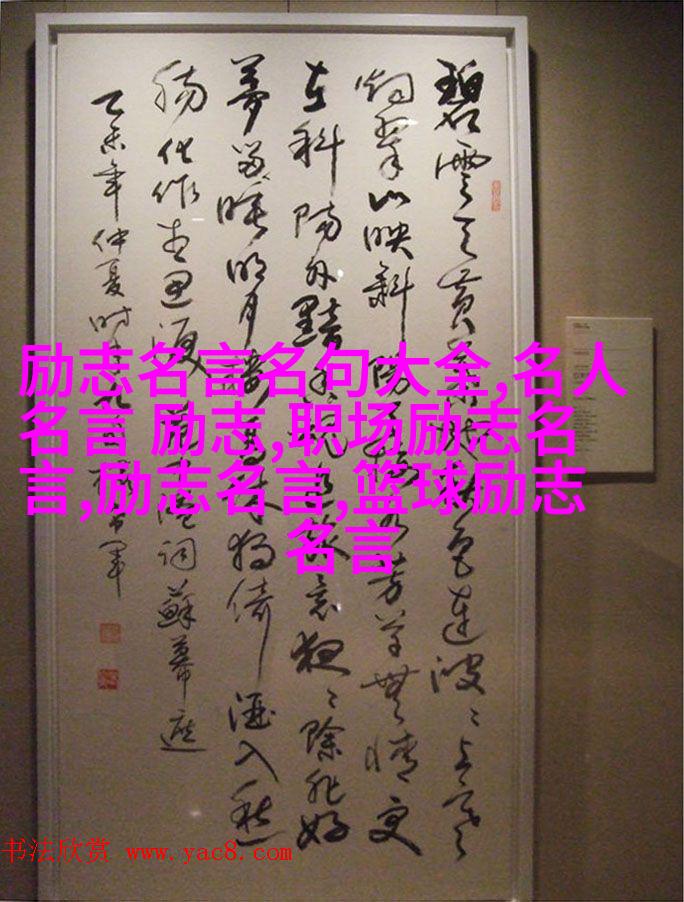 碧雲天黃葉地秋色連波〻上寒
烟翠山映斜陽天接水芳草無情更
在斜陽外黯鄉魂追旅意夜〻除非好
夢留睡明月樓高休獨倚酒入愁
腸化作相思淚范仲淹詞蘇幕遮
乙未年仲夏時軍
励志名言名句大全,名人
名言 励志,职场励志名
言,励志名言,篮球励志
名言
书法欣赏 www.yac8.com